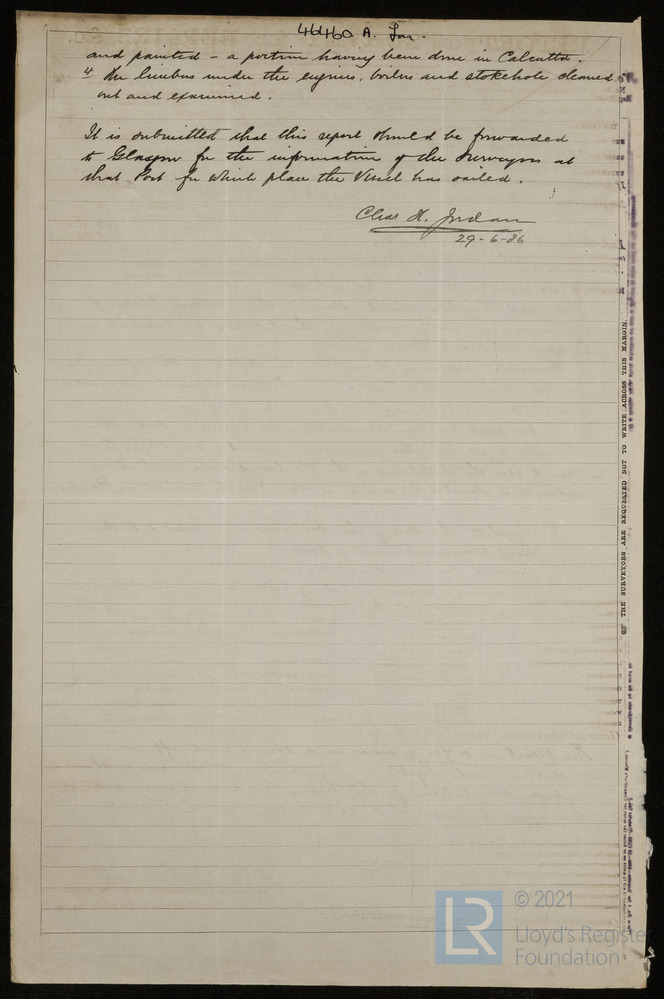 46460 A. Lon.
and painted – a portion having been done in Calcutta.
4 The limbers under the engines, boilers and stokehole cleaned
out and examined.
It is submitted that this report should be forwarded
to Glasgow for the information of the Surveyors at
that Port for which place the Vessel has sailed.
Chas H. Jordan
29-6-86
THE SURVEYORS ARE REQUESTED NOT TO WRITE ACROSS THIS MARGIN.
LR
© 2021
Lloyd's Register
Foundation